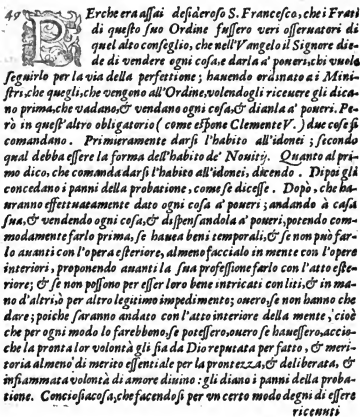 49 PErche era assai desideroso S. Francesco, che i Frati
di questo suo Ordine fussero veri osseruatori di
quel alto conseglio, che nell'Vangelo il Signore die-
de di vendere ogni cosa, e darla a' poueri, chi vuole
seguirlo per la via della perfettione; hauendo ordinato a i Mini-
stri, che quegli, che vengono all'Ordine, volendogli riceuere gli dica-
no prima, che vadano, & vendano ogni cosa, & dianla a' poueri. Pe-
rò in quest'altro obligatorio (come espone Clemente V.) due cose si
comandano. Primieramente darsi l'habito all'idonei; secondo
qual debba essere la forma dell'habito de' Nouitij. Quanto al pri-
mo dico, che comanda darsi l'habito all'idonei, dicendo. Di poi gli
concedano i panni della probatione, come se dicesse. Dopò, che ha-
uranno effettuatamente dato ogni cosa a' poueri; andando à casa
sua, & vendendo ogni cosa, & dispensandola a' poueri, potendo com-
modamente farlo prima, se hauea beni temporali, & se non può far-
lo auanti con l'opera esteriore, almeno faccialo in mente con l'opera
interiori, proponendo auanti la sua professione farlo con l'atto este-
riore; & se non possono per esser loro bene intricati con liti, & in ma-
no d'altri, ò per altro legitimo impedimento; ouero, se non hanno che
dare; poiche saranno andato con l'atto interiore della mente, cioè
che per ogni modo lo farebbono, se potessero, ouero se hauessero, accio-
che la pronta lor volontà gli sia da Dio reputata per fatto, & meri-
toria almeno di merito essentiale per la prontezza, & deliberata, &
infiammata volontà di amore diuino: gli diano i panni della proba-
tione. Conciosiacosa, che facendosi per vn certo modo degni di essere
riceuuti